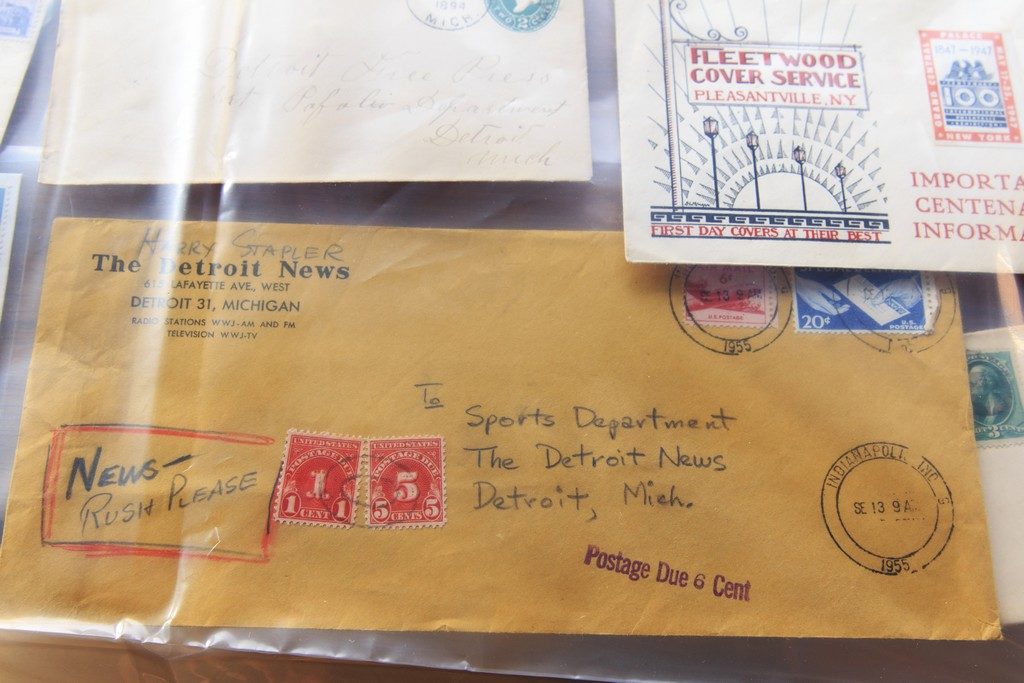 1894
MICH.
2
Detroit Free Press
Department
Detroit
Mich
FLEETWOOD
COVER SERVICE
PLEASANTVILLE, NY
FIRST DAY COVERS AT THEIR BEST
1847-1947
GRAND CENTRAL
PALACE
MAY 17-25, 1947
CENTENARY
100
INTERNATIONAL
PHILATELIC
EXHIBITION
NEW YORK
IMPORTA
CENTENA
INFORMA
HARRY STAPLER
The Detroit News
615 LAFAYETTE AVE., WEST
DETROIT 31, MICHIGAN
RADIO STATIONS WWJ-AM AND FM
TELEVISION WWJ-TV
6¢
SE 13 9 AM
U.S. POSTAGE
1955
20¢
U.S.
POSTAGE
NEWS-
RUSH PLEASE
UNITED STATES
POSTAGE DUE
1
1 CENT 1
UNITED STATES
POSTAGE DUE
5
5 CENTS 5
To
Sports Department
The Detroit News
Detroit, Mich.
Postage Due 6 Cent
INDIANAPOLIS IND. G
SE 13 9 A
1955